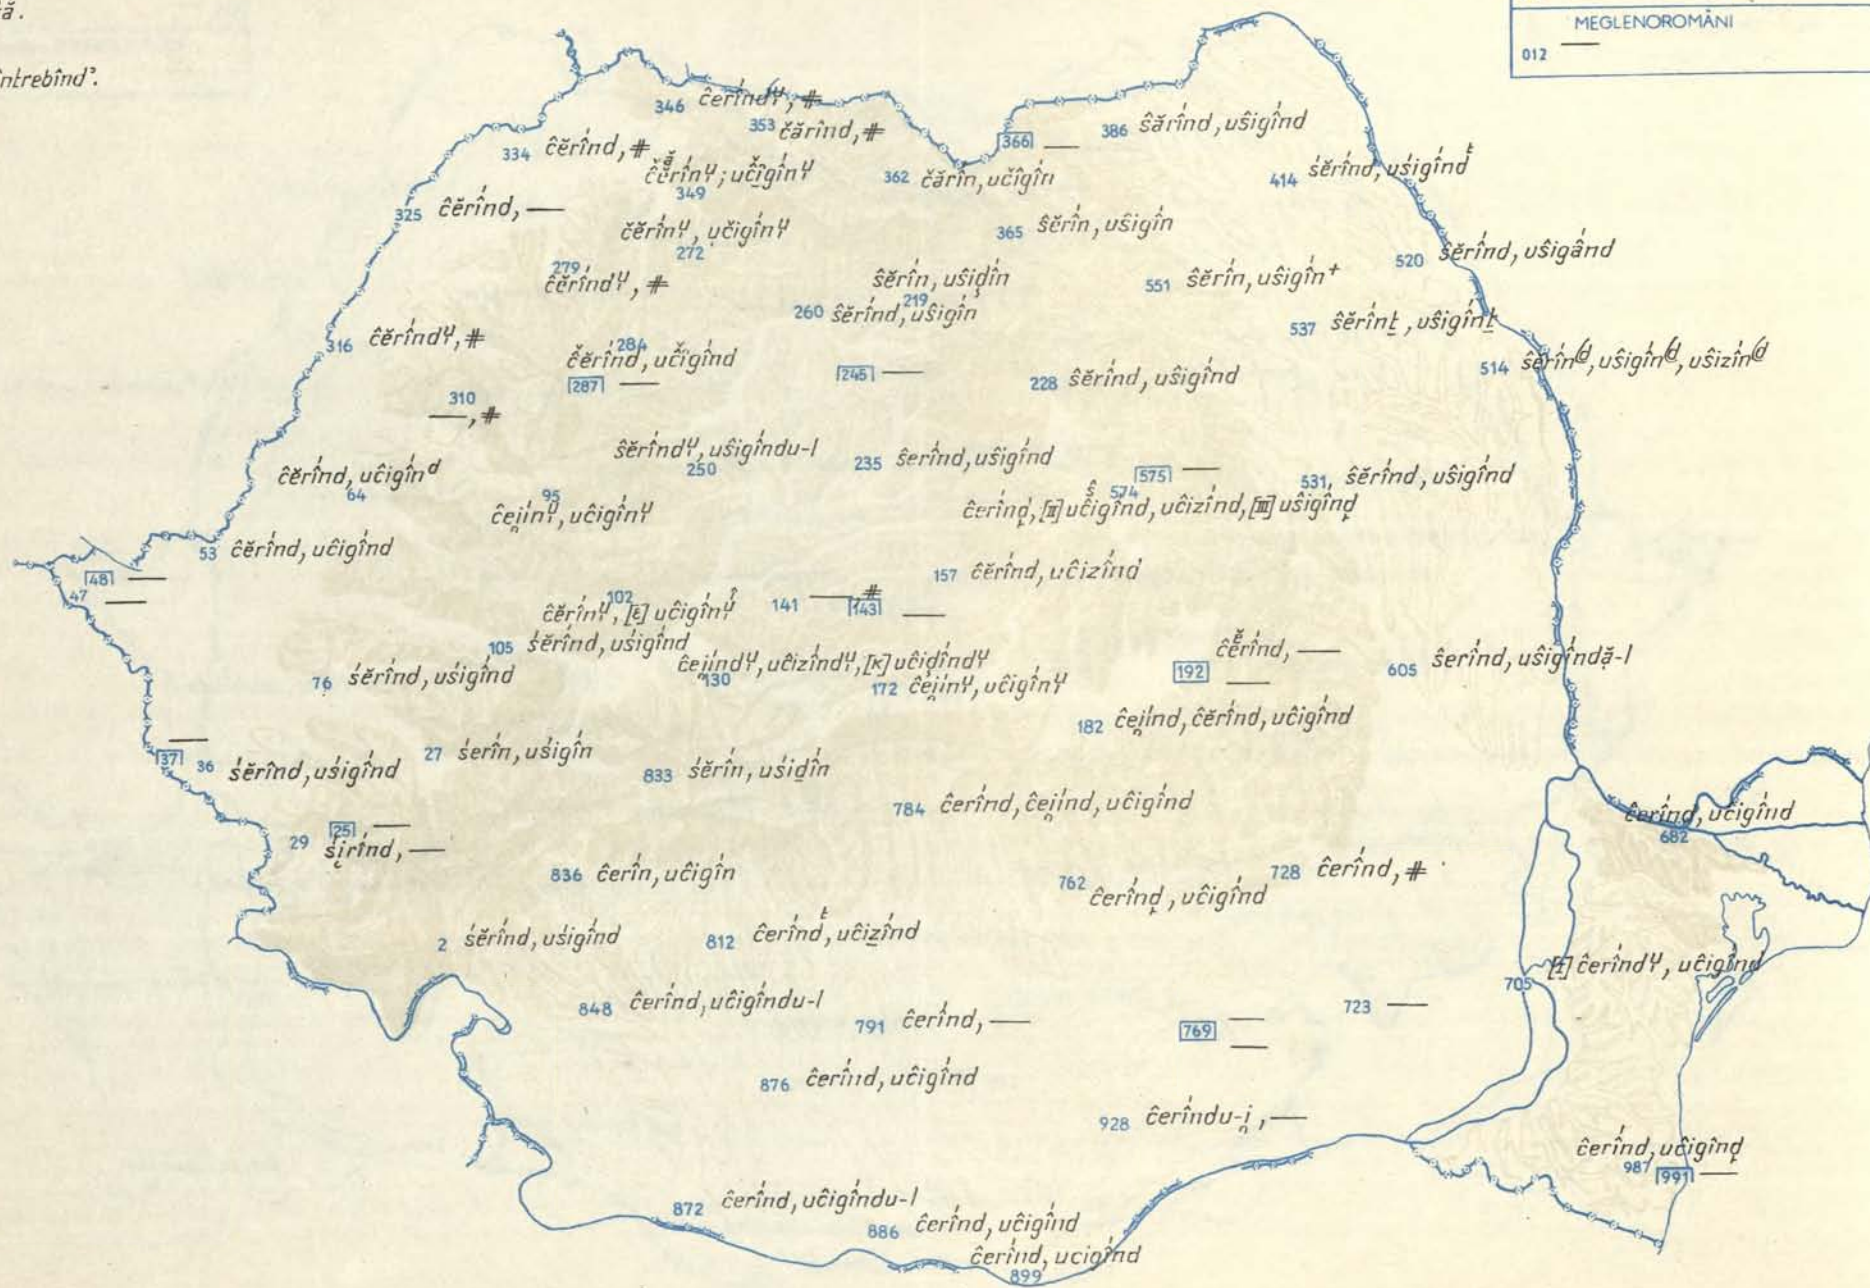 ă.
întrebînd’.
MEGLENOROMÂNI
012 —
346 ĉerîndᶣ, #
353 čărînd, #
334 ĉĕrînd, #
366 —
386 ŝărînd, uŝigînd
349 uĉigînᶣ
362 čărîn, učigîn
414 śĕrînd, uśigîndᵗ
325 ĉĕrînd, —
272 čĕrînᶣ, učigînᶣ
365 ŝĕrîn, uŝigîn
520 ŝĕrînd, uŝigând
279 ĉĕrîndᶣ, #
219 ŝĕrîn, uŝid̦în
551 ŝĕrîn, uŝigîn⁺
260 ŝĕrînd, uŝigîn
537 ŝĕrînt̲, uŝigînt̲
316 ĉĕrîndᶣ, #
284 čĕrînd, učigînd
514 ŝĕrîn⁽ᵈ, uŝigîn⁽ᵈ, uŝizîn⁽ᵈ
287 —
245 —
228 ŝĕrînd, uŝigînd
310 —, #
250 ŝĕrîndᶣ, uŝigîndu-l
235 ŝerînd, uŝigînd
575 —
531 ŝĕrînd, uŝigînd
64 ĉĕrînd, uĉigînᵈ
95 ĉei̯înᶣ, uĉigînᶣ
574 ĉerînd̦, [II] uĉigînd, uĉizînd, [III] uŝigînd̦
53 ĉĕrînd, uĉigînd
48 —
47 —
157 ĉĕrînd, uĉizînd
102 ĉĕrînᶣ, [ɛ] uĉigînᶣ
141 —, #
143 —
105 śĕrînd, uśigînd
192 ĉĕrînd, —
—
605 ŝerînd, uŝigîndă-l
76 śĕrînd, uśigînd
130 ĉei̯îndᶣ, uĉizîndᶣ, [K] uĉid̦îndᶣ
172 ĉei̯înᶣ, uĉigînᶣ
182 ĉei̯înd, ĉĕrînd, uĉigînd
37 —
36 śĕrînd, uśigînd
27 śerîn, uśigîn
833 śĕrîn, uśid̲în
784 ĉerînd, ĉei̯înd, uĉigînd
682 ĉerînd, uĉigînd
25 —
29 śirînd, —
836 ĉerîn, uĉigîn
762 ĉerînd̦, uĉigînd
728 ĉerînd, #
2 śĕrînd, uśigînd
812 ĉerîndᵗ, uĉizînd
705 [I] ĉerîndᶣ, uĉigînd
848 ĉerînd, uĉigîndu-l
791 ĉerînd, —
769 —
—
723 —
876 ĉerînd, uĉigînd
928 ĉerîndu-i̯, —
987 ĉerînd, uĉigînd̦
991 —
872 ĉerînd, uĉigîndu-l
886 ĉerînd, uĉigînd
899 ĉerînd, ucigînd